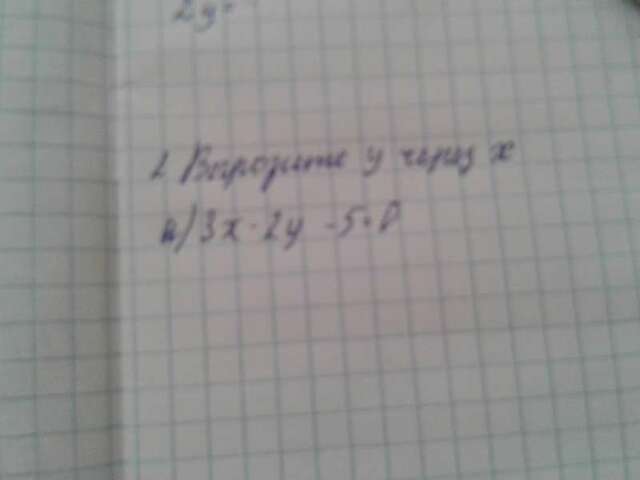 2y=
1 Выразите y через x
а) 3x - 2y - 5 = 0